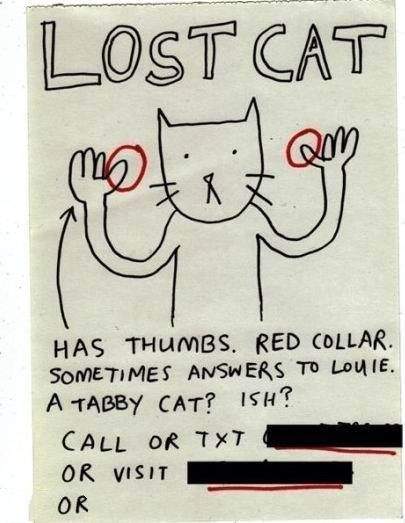 LOST CAT
HAS THUMBS. RED COLLAR.
SOMETIMES ANSWERS TO LOUIE.
A TABBY CAT? ISH?
CALL OR TXT
OR VISIT
OR